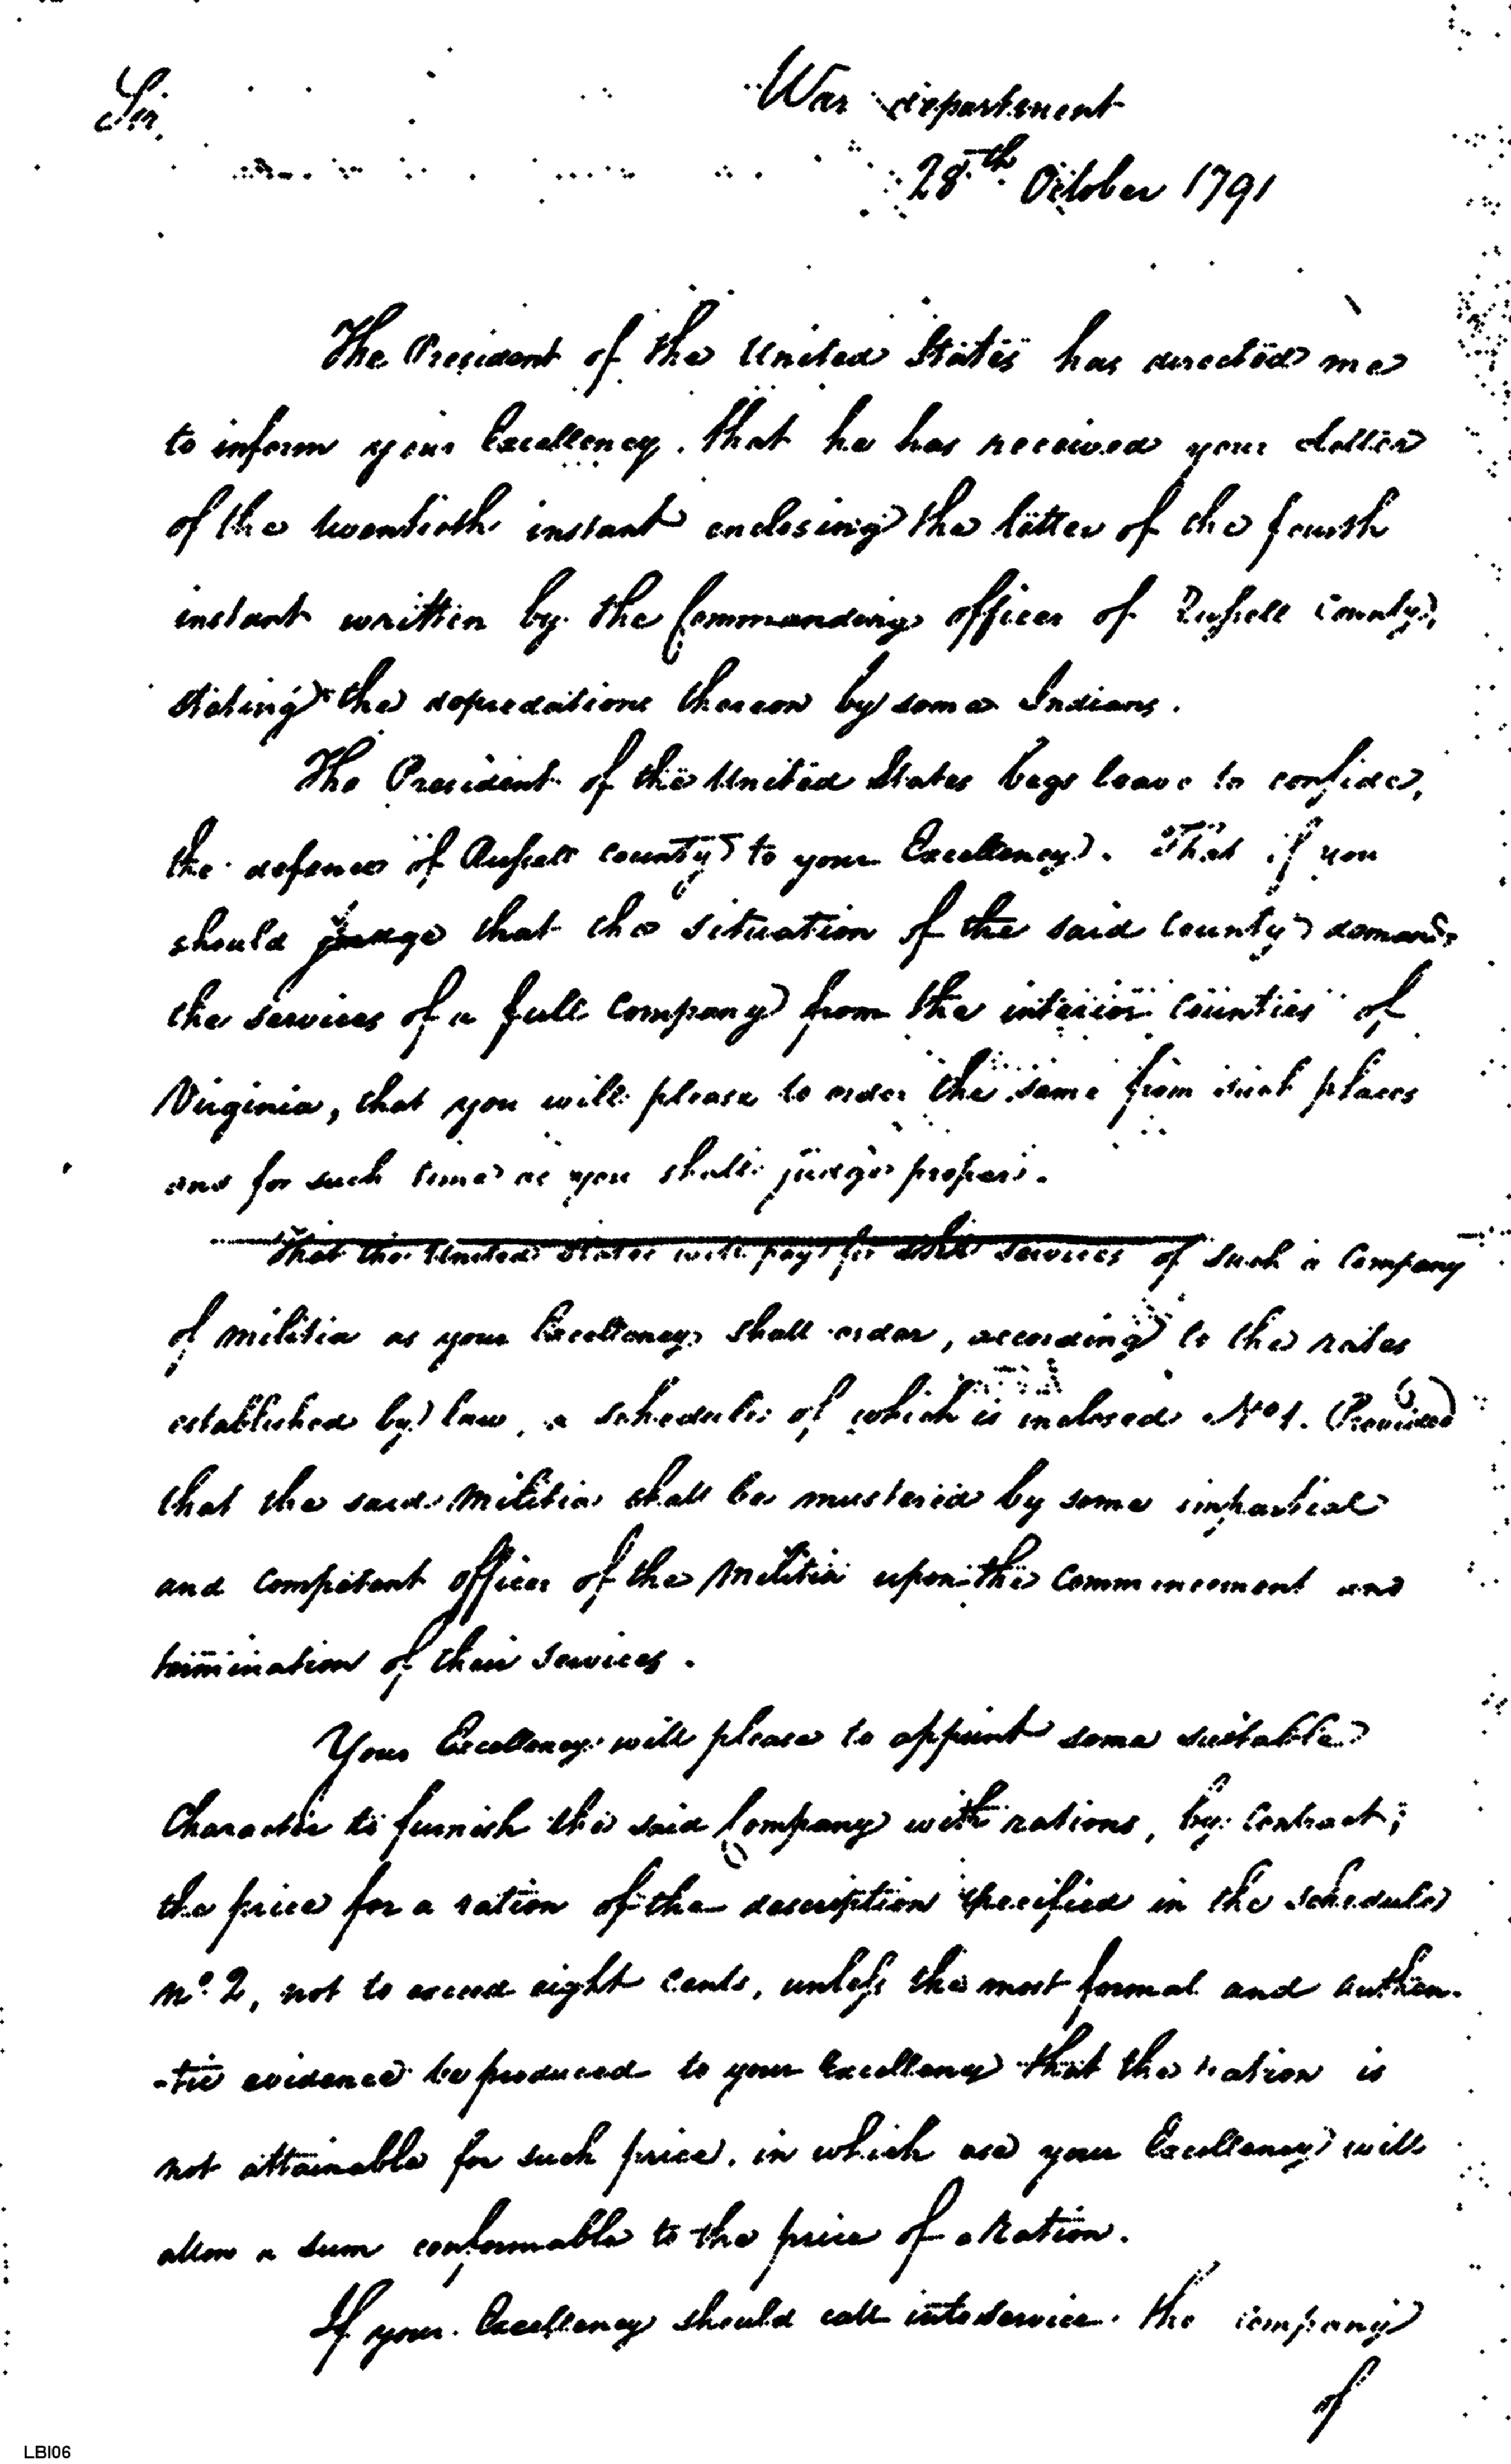 Sir,
War department
28th October 1791
The President of the United States has directed me
to inform your Excellency. that he has received your Letter
of the twentieth instant enclosing the letter of the fourth
instant written by the Commanding officer of Russell County,
stating the depredations thereon by some Indians.
The President of the United States begs leave to confide,
the defence of Russell county to your Excellency. That if you
should judge that the situation of the said County demands
the services of a full Company from the interior Counties of
Virginia, that you will please to order the same from such places
and for such time as you shall judge proper.
That the United States will pay for the services of such a Company
of militia as your Excellency shall order, according to the rates
established by law, a schedule of which is inclosed No 1. Provided
that the said Militia shall be mustered by some impartial
and competent officer of the Militia upon the commencement and
termination of their services.
Your Excellency will please to appoint some suitable
Character to furnish the said Company with rations, by Contract;
the price for a ration of the description specified in the schedule
No. 2, not to exceed eight Cents, unless the most formal and authen-
-tic evidence be produced to your Excellency that the ration is
not attainable for such price, in which case your Excellency will
allow a sum conformable to the price of a Ration.
If your Excellency should call into service the company
of
LBI06